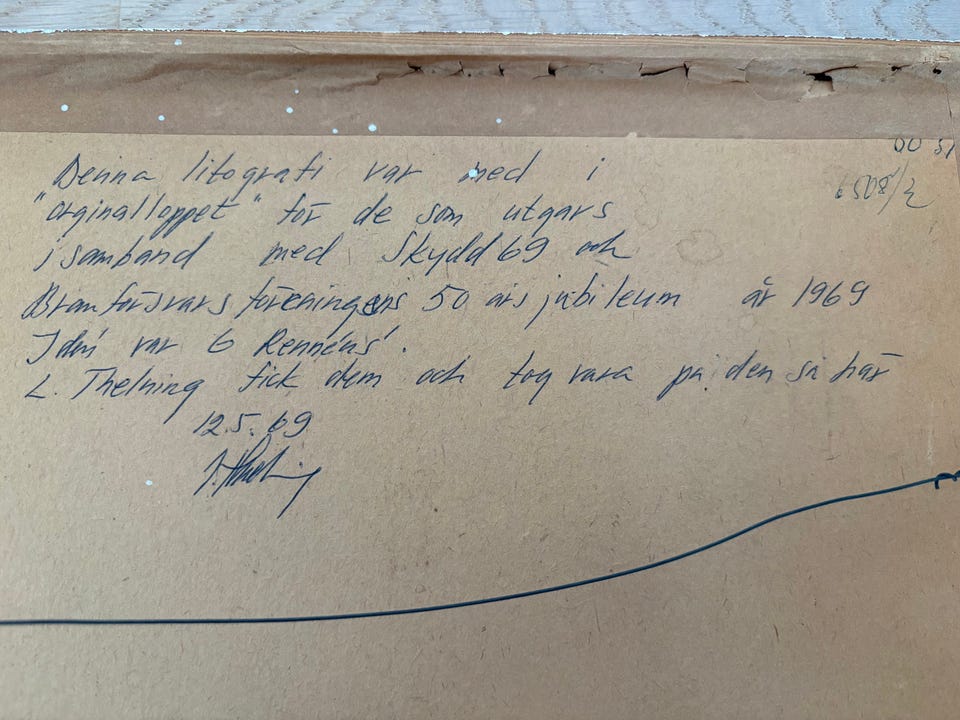 Denna litografi var med i
"orginalloppet" för de som utgavs
i samband med Skydd 69 och
Brandförsvarsföreningens 50 års jubileum år 1969
Idén var G Rennéus'.
L. Thelning fick dem och tog vara på den så här
12.5.69